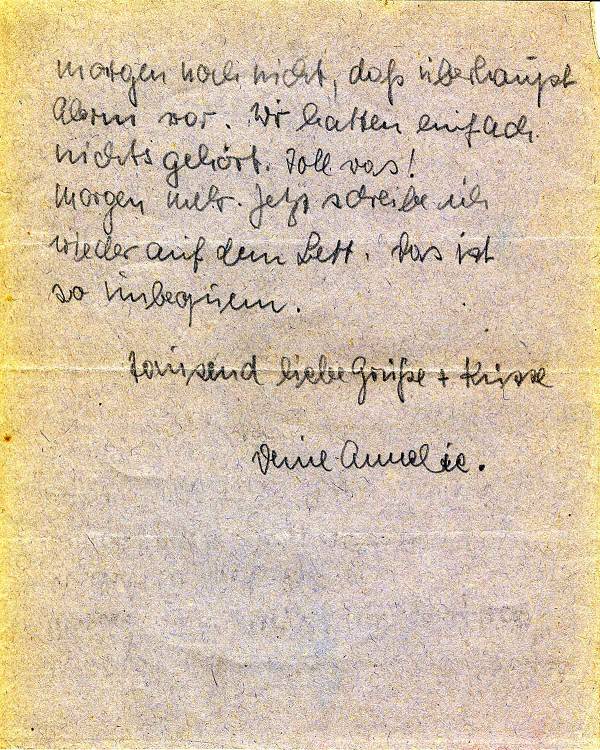 morgen noch nicht, daß überhaupt
Alarm war. Wir hatten einfach
nichts gehört. Toll was!
Morgen mehr. Jetzt schreibe ich
wieder auf dem Bett. Das ist
so unbequem.
Tausend liebe Grüße + Küsse
Deine Annelie.